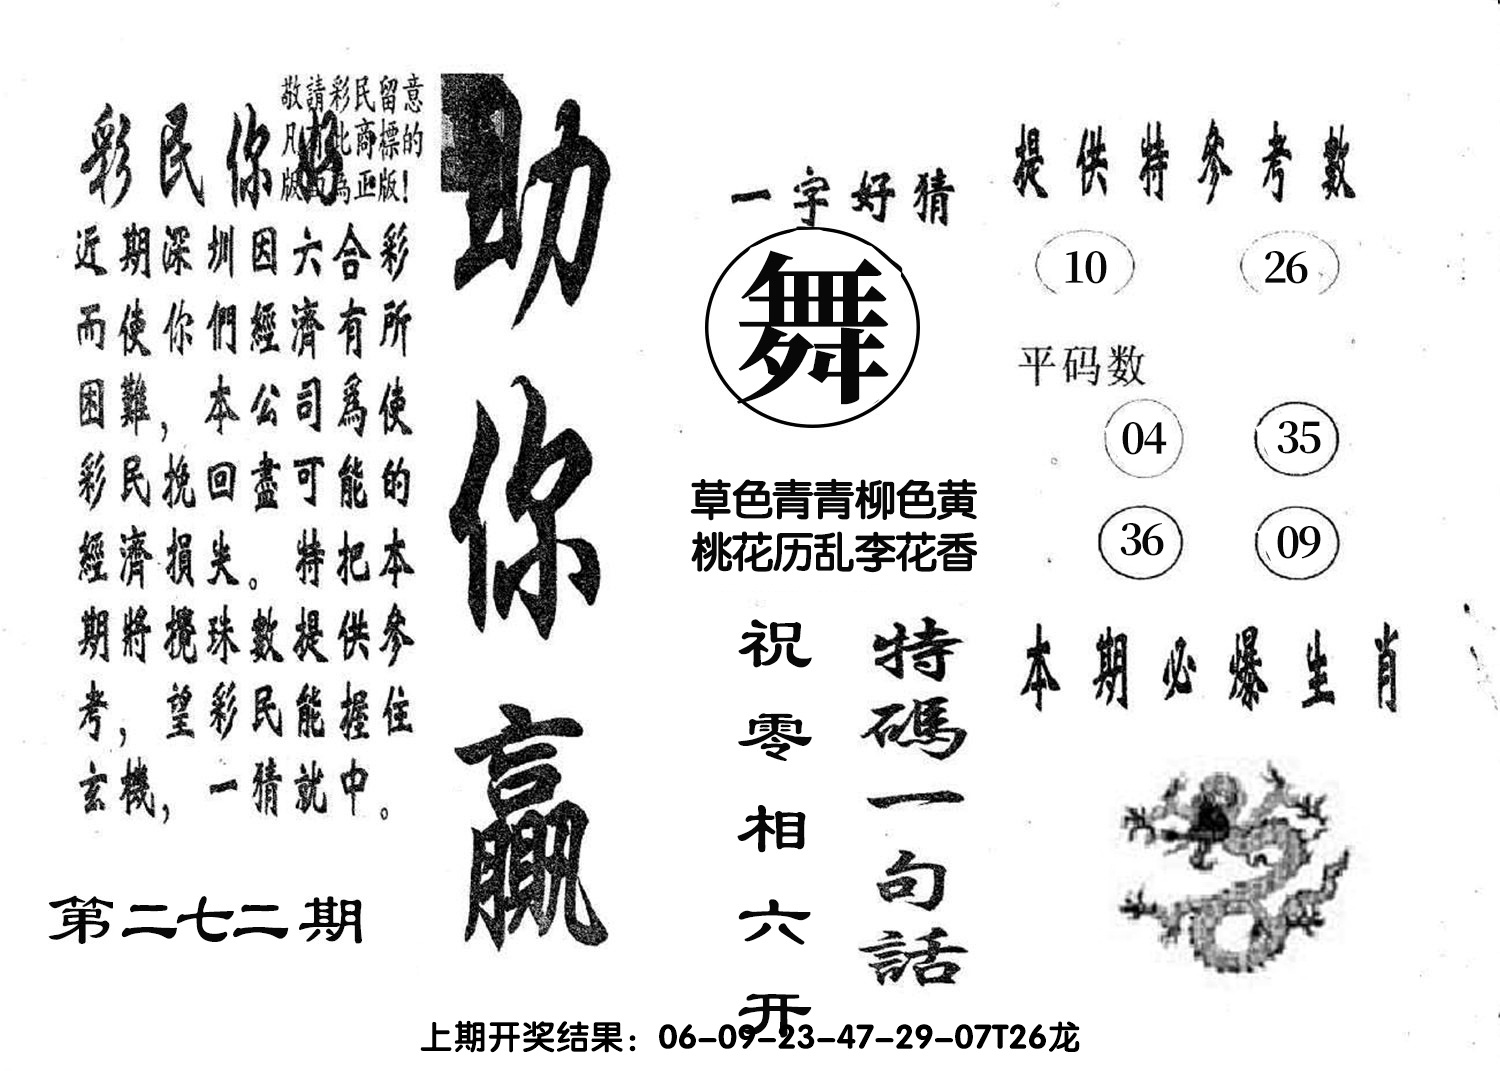 敬請彩民留意
凡有此商標的
版面為正版!
彩民你好
近期深圳因六合彩
而使你們經濟有所
困難，本公司爲使
彩民挽回盡可能的
經濟損失。特把本
期將攪珠數提供參
考，望彩民能握住
玄機，一猜就中。
第二七二期
助你贏
一字好猜
舞
草色青青柳色黄
桃花历乱李花香
特碼一句話
祝零相六开
提供特參考數
10 26
平码数
04 35
36 09
本期必爆生肖
上期开奖结果：06-09-23-47-29-07T26龙